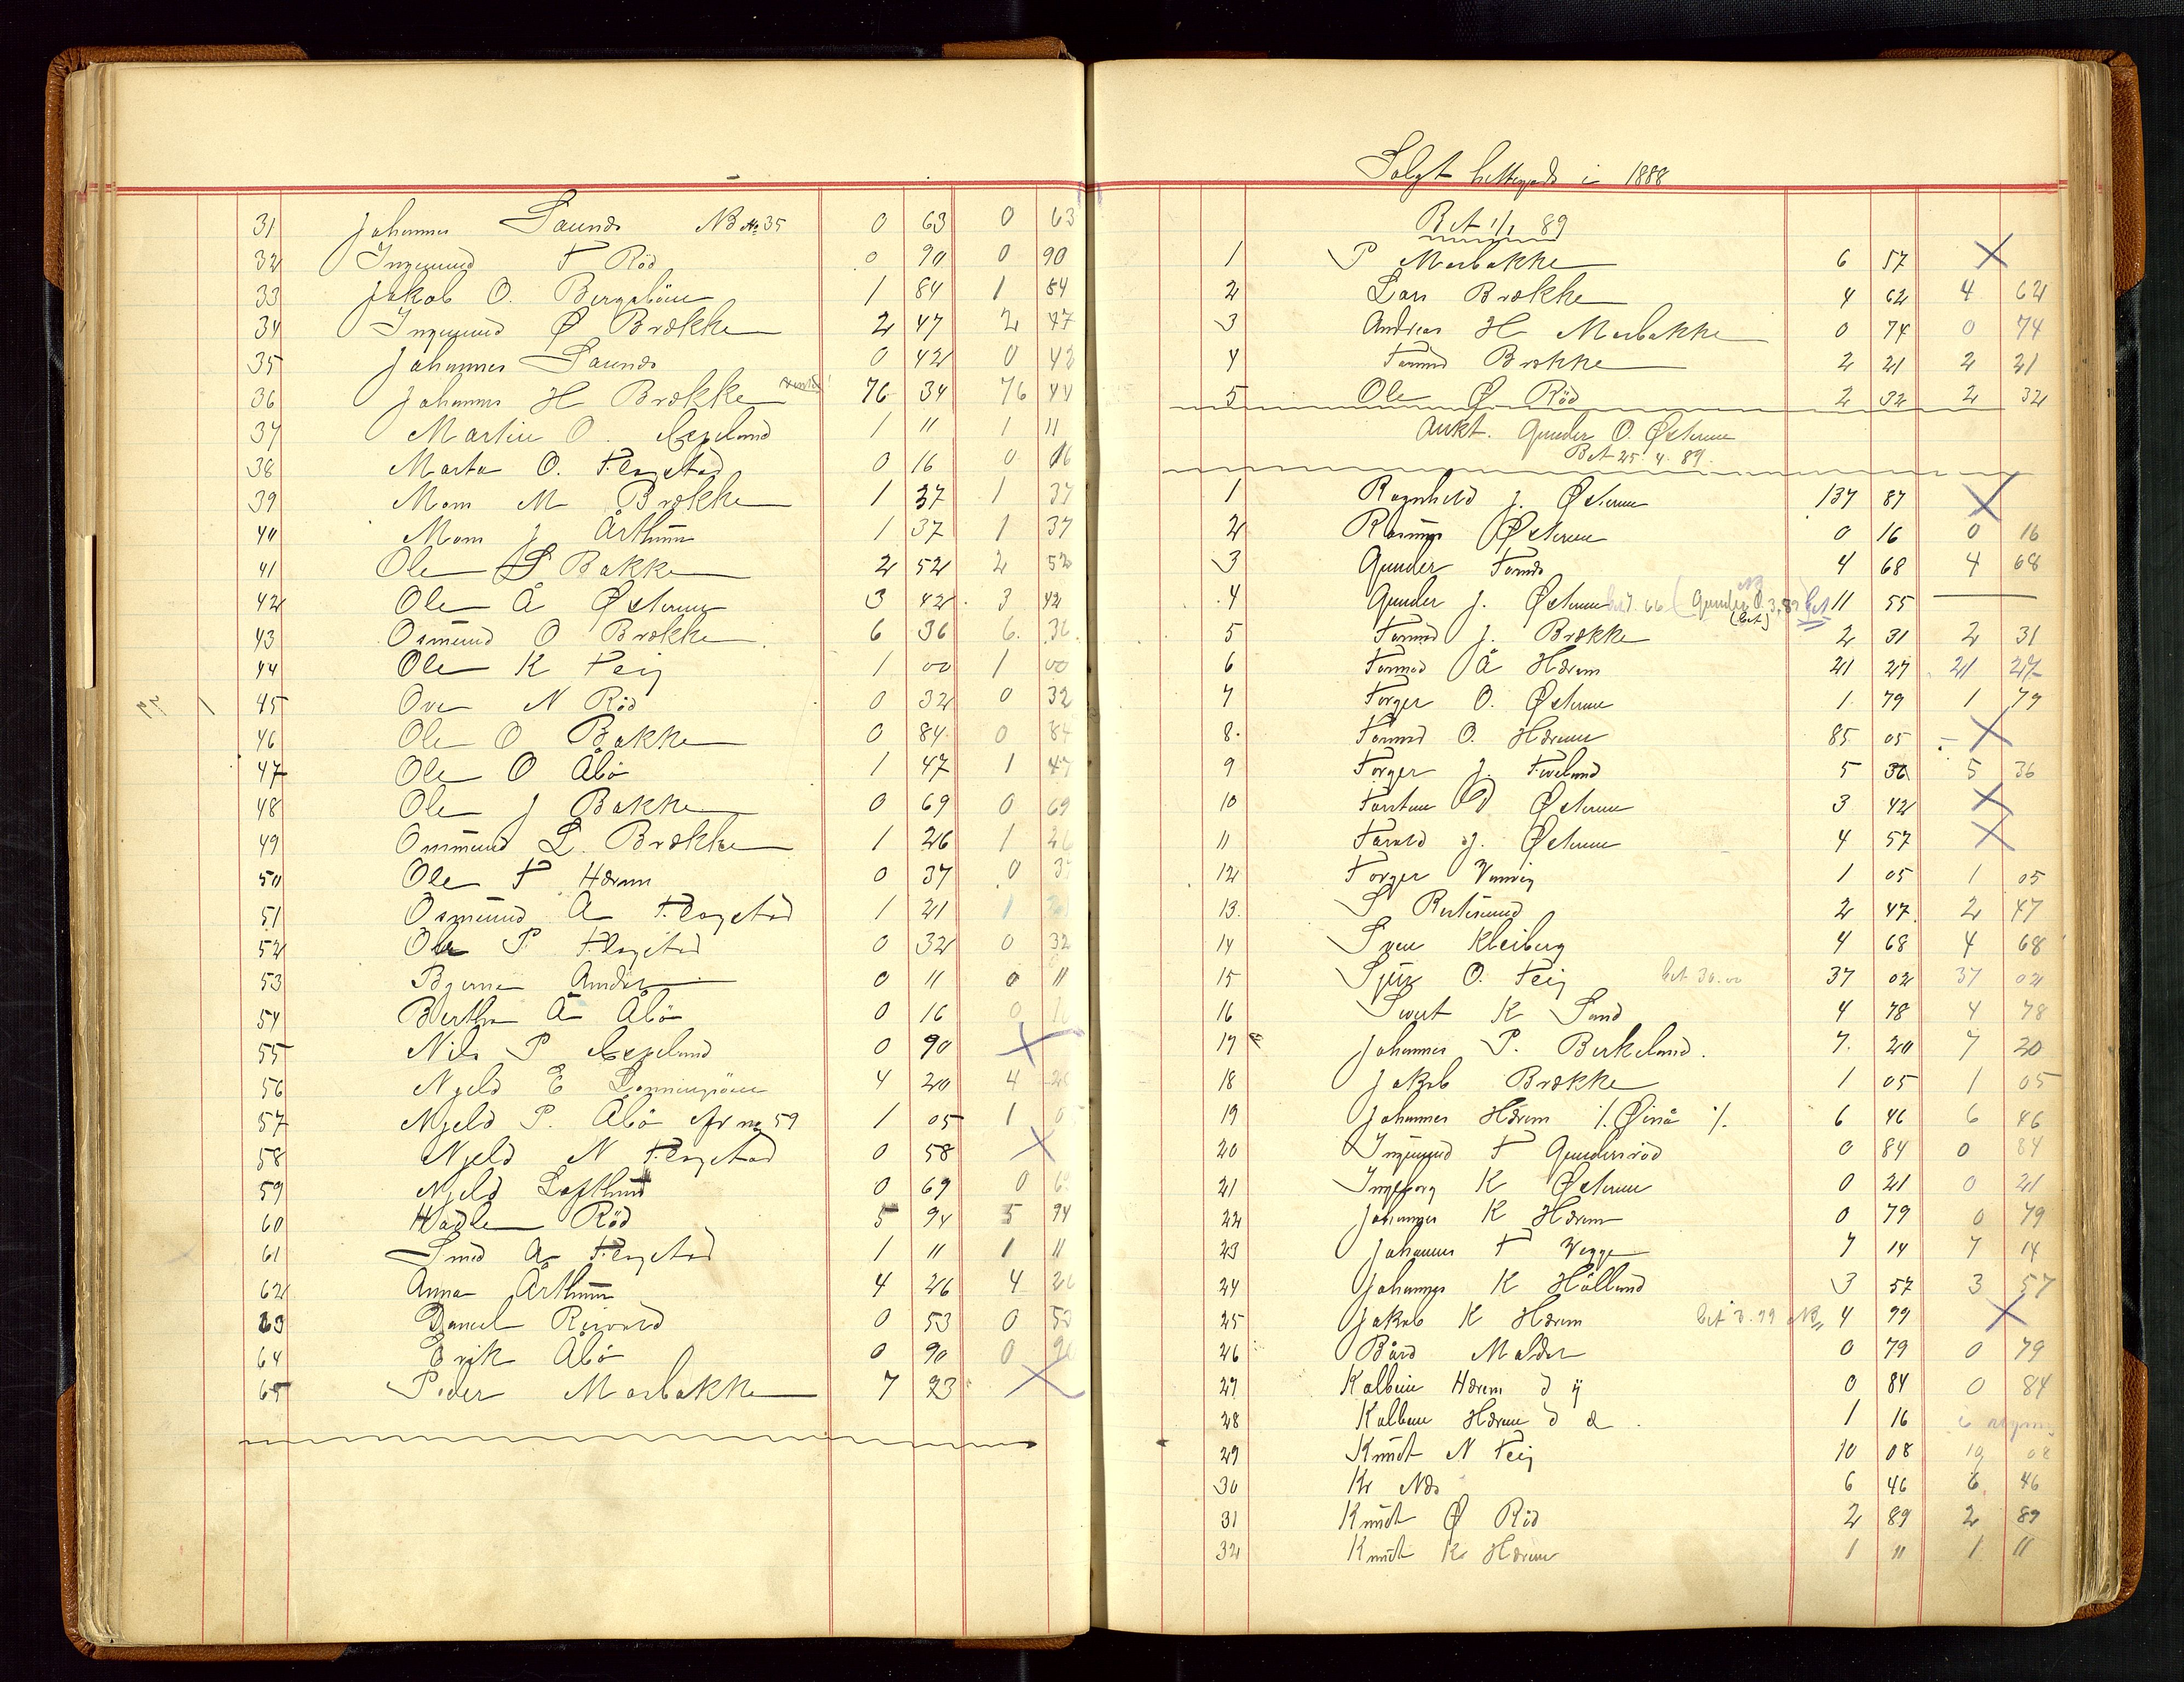 31 Johannes Saunds NB No 35 0 63 0 63
32 Ingemund T Röd 0 90 0 90
33 Jakob O. 1 84 1 84
34 Ingemund Ø Brække 2 47 2 47
35 Johannes Saunds 0 42 0 42
36 Johannes H Brække 76 34 76 44
37 Martin O. Espeland 1 11 1 11
38 Marta O. Flogstad 0 16 0 16
39 Mons M Brække 1 37 1 37
40 Mons J Årthun 1 37 1 37
41 Ole S Bakke 2 52 2 52
42 Ole Å Østrem 3 42 3 42
43 Osmund O Brække 6 36 6 36
44 Ole K Feij 1 00 1 00
45 Ove N Röd 0 32 0 32
46 Ole O Bakke 0 84 0 84
47 Ole O Åbö 1 47 1 47
48 Ole J Bakke 0 69 0 69
49 Ommund L. Brække 1 26 1 26
50 Ole T Hærem 0 37 0 37
51 Osmund A Flogstad 1 21 1 21
52 Ole P. Flogstad 0 32 0 32
53 0 11 0 11
54 Bertha Å Åbö 0 16 0 16
55 Nils P Espeland 0 90 X
56 Njeld E 4 20 4 20
57 Njeld P. Åbö No 59 1 05 1 05
58 Njeld N Flogstad 0 58 X
59 Njeld Lofthus 0 69 0 69
60 Hadle Röd 5 94 5 94
61 A Flogstad 1 11 1 11
62 Anna Årthun 4 26 4 26
63 Daniel 0 53 0 53
64 Erik Åbö 0 90 0 90
65 Peder Marbakke 7 93 X
Solgt i 1888
Bet 1/1 89
1 P Marbakke 6 57 X
2 Lars Brække 4 62 4 62
3 Andreas H Marbakke 0 74 0 74
4 Tormod Brække 2 21 2 21
5 Ole Ø Röd 2 32 2 32
Aukt. Gunder O. Østrem
Bet 25. 4. 89.
1 Ragnhild J. Østrem 137 87 X
2 Rasmus Østrem 0 16 0 16
3 Gunder 4 68 4 68
4 Gunder J. Østrem bet 7.66 (Gunder O. 3,89 bet 11 55
NB
(bet)
5 Tormod J. Brække 2 31 2 31
6 Tormod Å Hærem 21 27 21 27
7 Torger O. Østrem 1 79 1 79
8 Tormod O. Hærem 85 05 X
9 Torger J. Tveland 5 36 5 36
10 Torsten Østrem 3 42 X
11 J. Østrem 4 57 X
12 Torger 1 05 1 05
13 S 2 47 2 47
14 Sven Kleiberg 4 68 4 68
15 O. Feij bet 36.00 37 02 37 02
16 Sivert K Sand 4 78 4 78
17 Johannes P. Berkeland. 7 20 7 20
18 Jakob Brække 1 05 1 05
19 Johannes Hærem /. Öinå ./. 6 46 6 46
20 Ingemund T Gundersröd 0 84 0 84
21 Ingeborg K Østrem 0 21 0 21
22 Johannes K Hærem 0 79 0 79
23 Johannes T 7 14 7 14
24 Johannes K Hålland 3 57 3 57
25 Jakob K Hærem bet 3.99 NB 4 99 X
26 Bård Maldar 0 79 0 79
27 Kolbein Hærem d y 0 84 0 84
28 Kolben Hærem d æ 1 16
29 Knudt N Feij 10 08 10 08
30 Kr Nds 6 46 6 46
31 Knudt Ø Röd 2 89 2 89
32 Knudt K Hærem 1 11 1 11